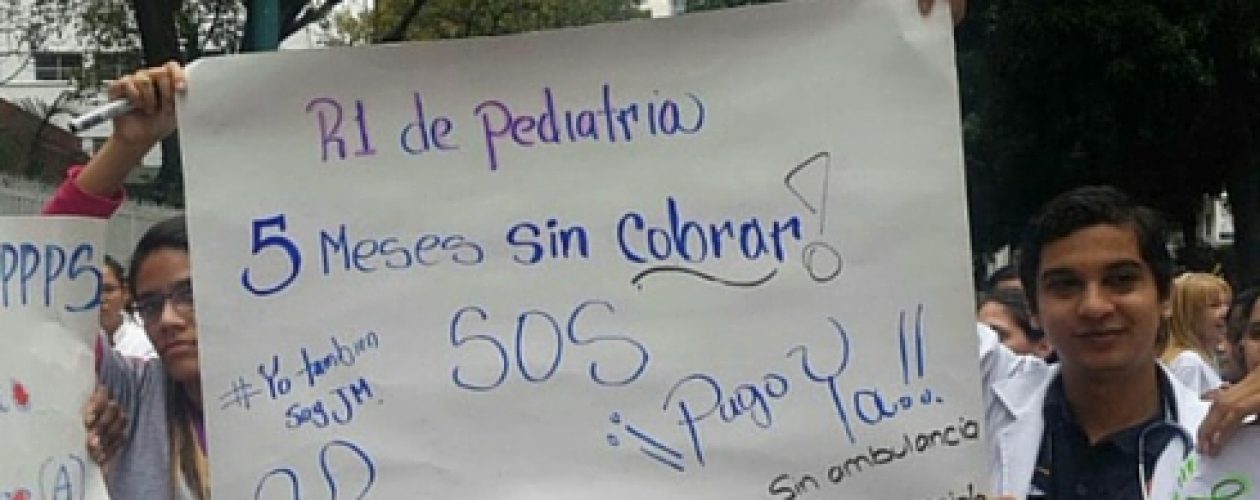 R1 de Pediatria
5 Meses sin Cobrar!
SOS
#Yo también
Soy JM.
¡¡Pago Ya!!
Sin ambulancia
PPPS
(A)